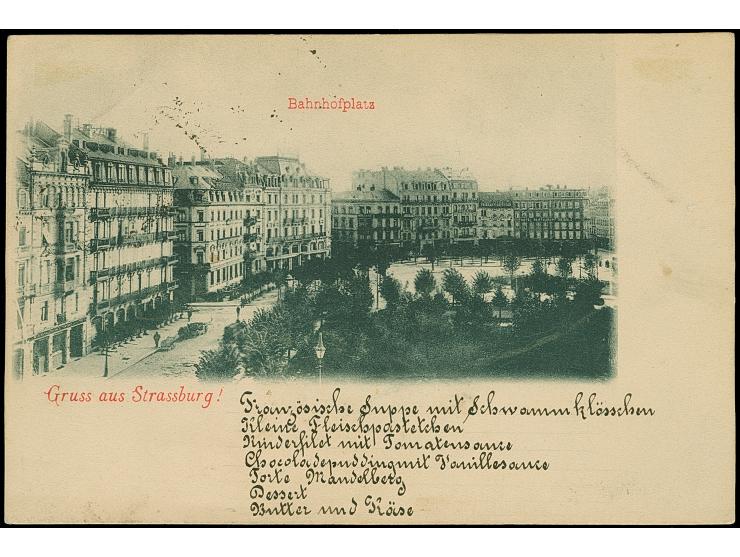 Bahnhofplatz
Gruss aus Strassburg!
Französische Suppe mit Schwammklösschen
Kleine Fleischpastetchen
Rinderfilet mit Tomatensauce
Chocoladepudding mit Vanillesauce
Torte Mandelberg
Dessert
Butter und Käse